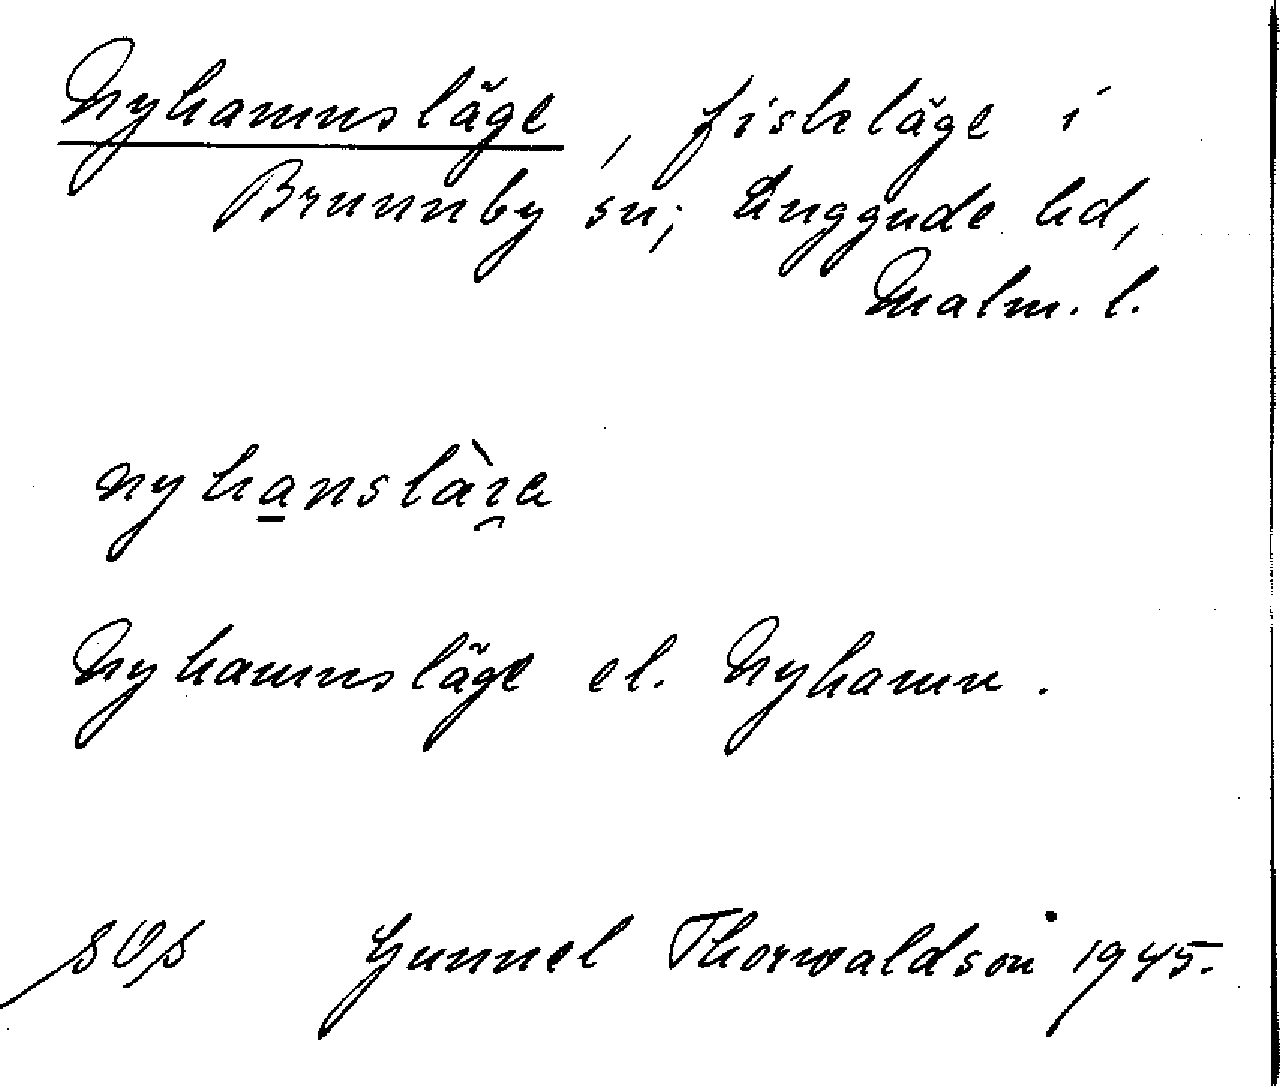 Nyhamnsläge, fiskeläge i
Brunnby sn; Luggude hd,
Malm. l.
nyha̲nslài̯a
Nyhamnsläge el. Nyhamn.
SOS Gunnel Thorwaldson 1945.